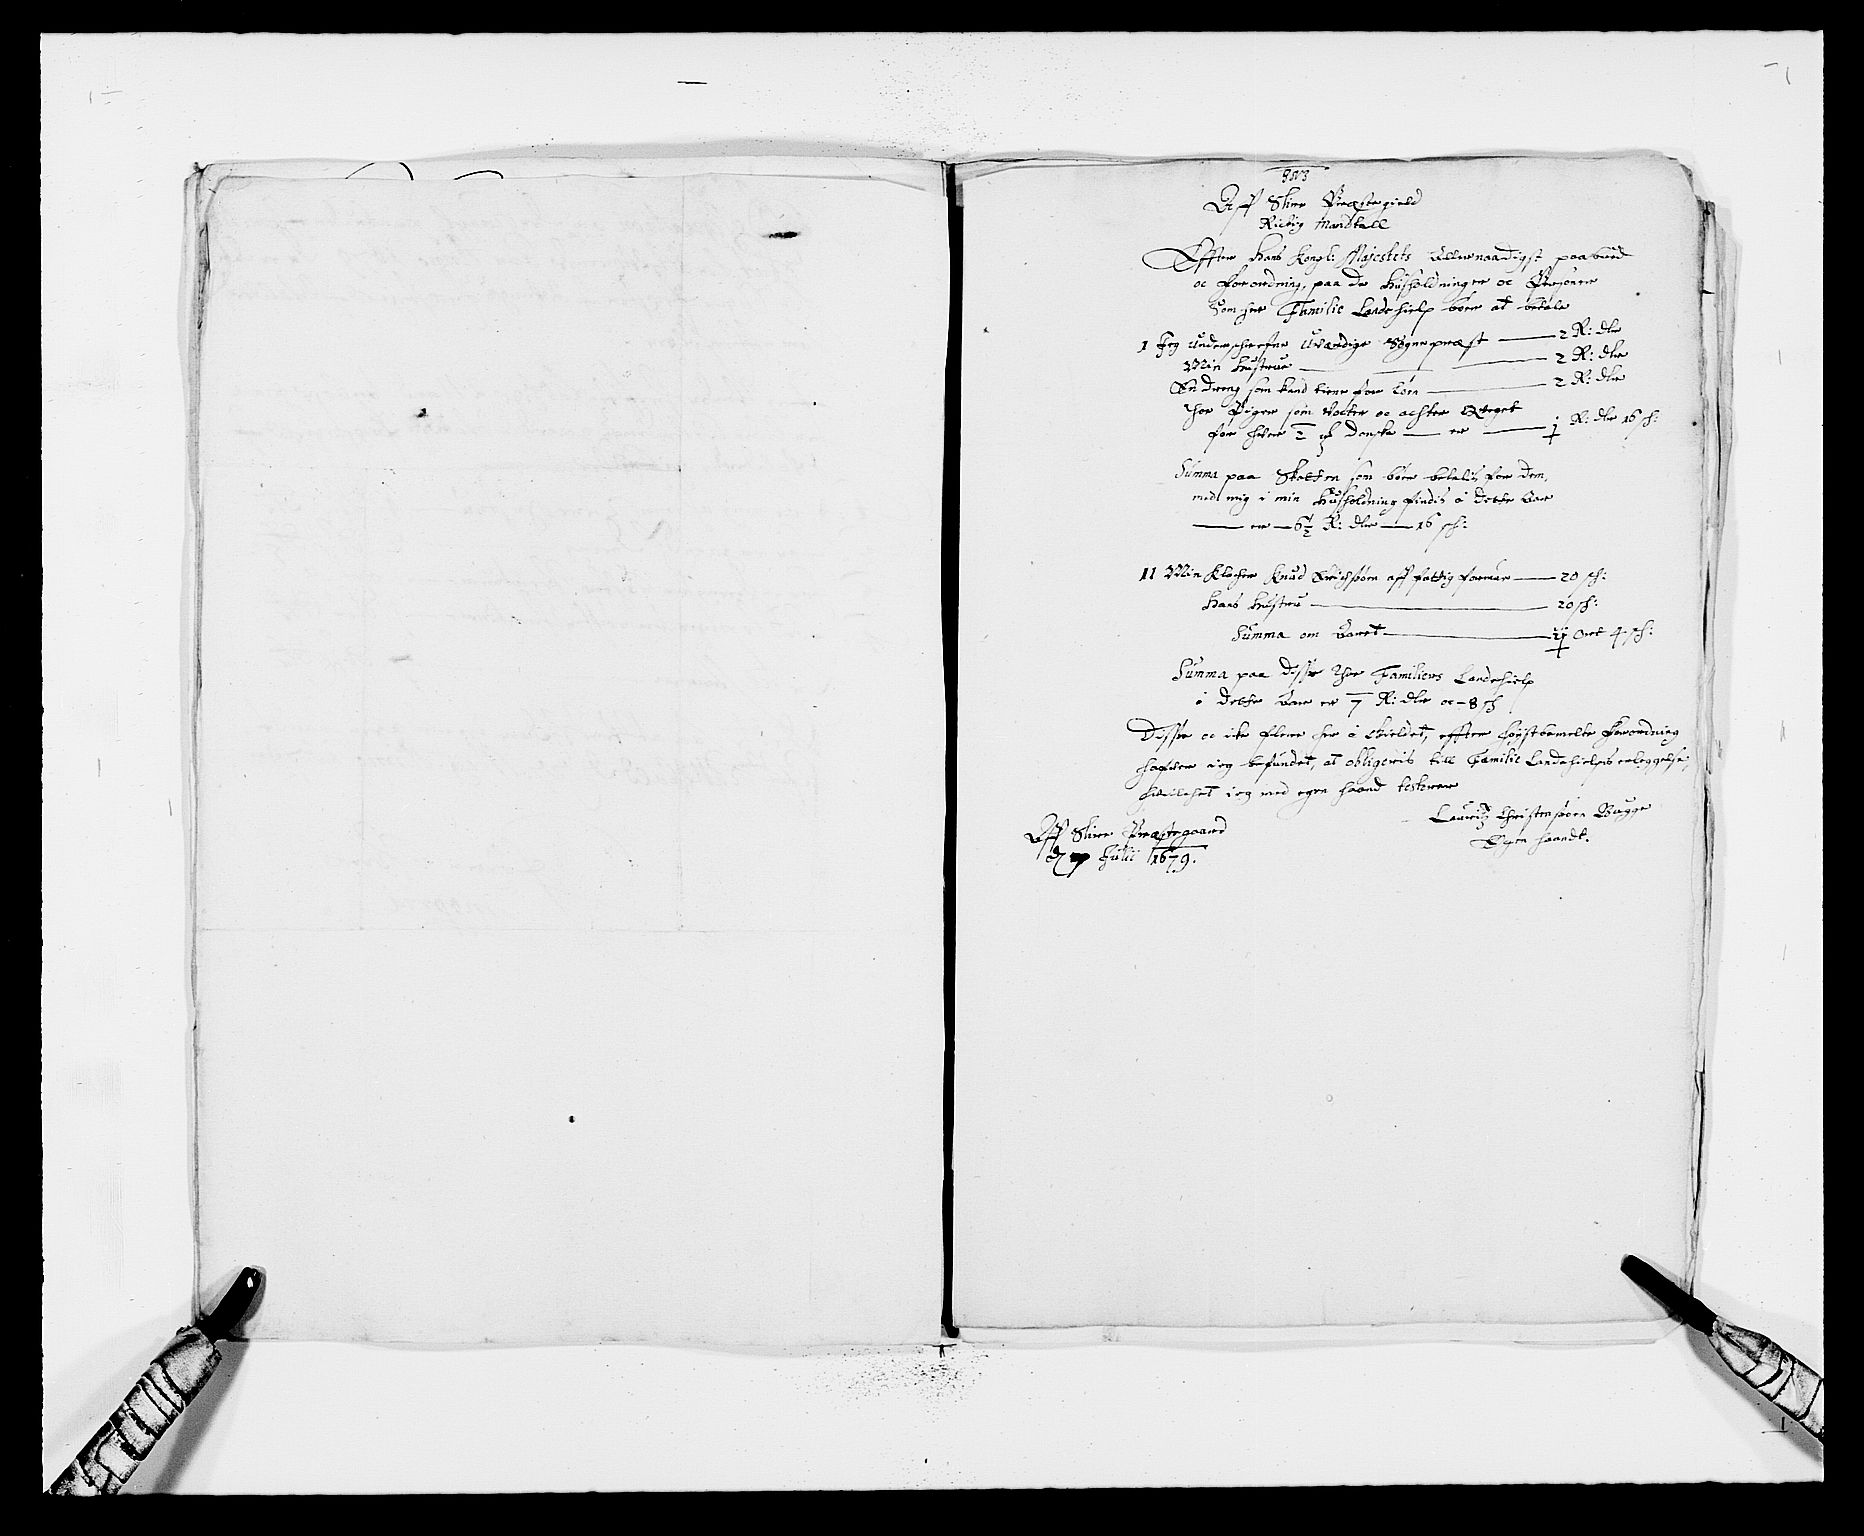 Aff Slire Præstegield
Richtig Mandtall
Effter Hans Kongl: Majestets Allernaadigst paabud
oc forordning, paa de Hüsholdninger oc Personer
som her Familie Landehielp bør at betale
1 Jeg underschrefne Uværdige Sogneprest — 2 R: dlr
Min Hustrue — 2 R: dlr
En dreng som kand tiene for Løn — 2 R: dlr
Thoe Piger som vocter oc achter Qveget
for hver ½ Danske — er — R: dlr 16 sh:
Summa paa Skatten som bør betalis for dem,
med mig i min Husholdning findis i dette Aar
— er — 6½ R: dlr — 16 sh:
11 Min Klocher Knud Erichsøn aff fattig formue — 20 sh:
Hans Hustru — 20 sh:
Summa om Aaret — Ort 4 sh:
Summa paa disse thoe Familiers Landehielp
i dette Aar er 7 R: dlr oc — 8 sh
Disse oc ike flere her i Gieldet, effter høistbemelte forordning
hafver ieg befundet, at obligeris till Familie Landehielpis erleggelse,
hvilchet ieg med egen haand testerer
Lauritz Christensøn Bugge
Egen haandt.
Aff Slire Præstegaard
d Julii 1679.